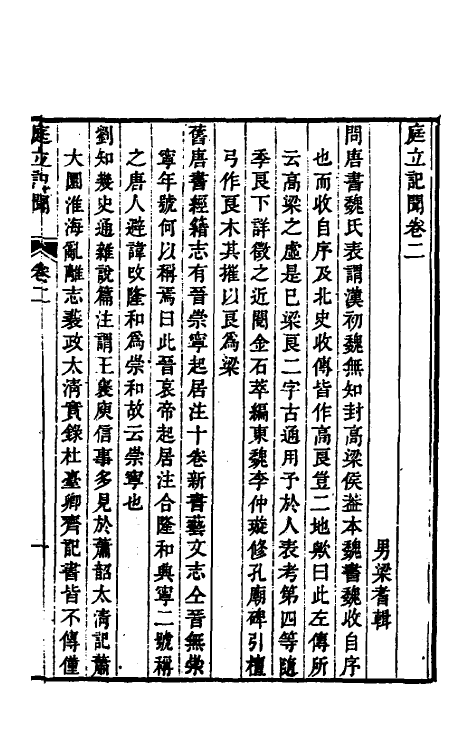 庭立記聞卷二
男梁耆輯
問唐書魏氏表謂漢初魏無知封高梁侯葢本魏書魏收自序
也而收自序及北史收傳皆作高良豈二地歟曰此左傳所
云高梁之虛是已梁良二字古通用予於人表考第四等隨
季良下詳徵之近閱金石萃編東魏李仲璇修孔廟碑引檀
弓作良木其摧以良爲梁
舊唐書經籍志有晉崇寧起居注十卷新書藝文志仝晉無崇
寧年號何以稱焉曰此晉哀帝起居注合隆和興寧二號稱
之唐人避諱改隆和爲崇和故云崇寧也
劉知幾史通雜說篇注謂王襃庾信事多見於蕭韶太清記蕭
大圜淮海亂離志裴政太清實錄杜臺卿齊記書皆不傳僅
庭立記聞
卷二
一